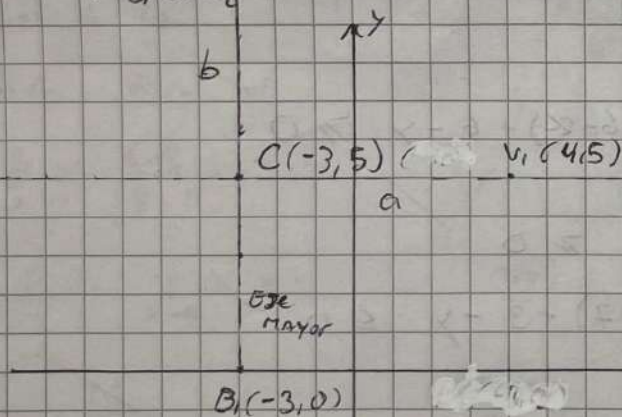 y
b
C(-3,5) V₁ (4,5)
a
Eje
Mayor
B₁(-3,0)